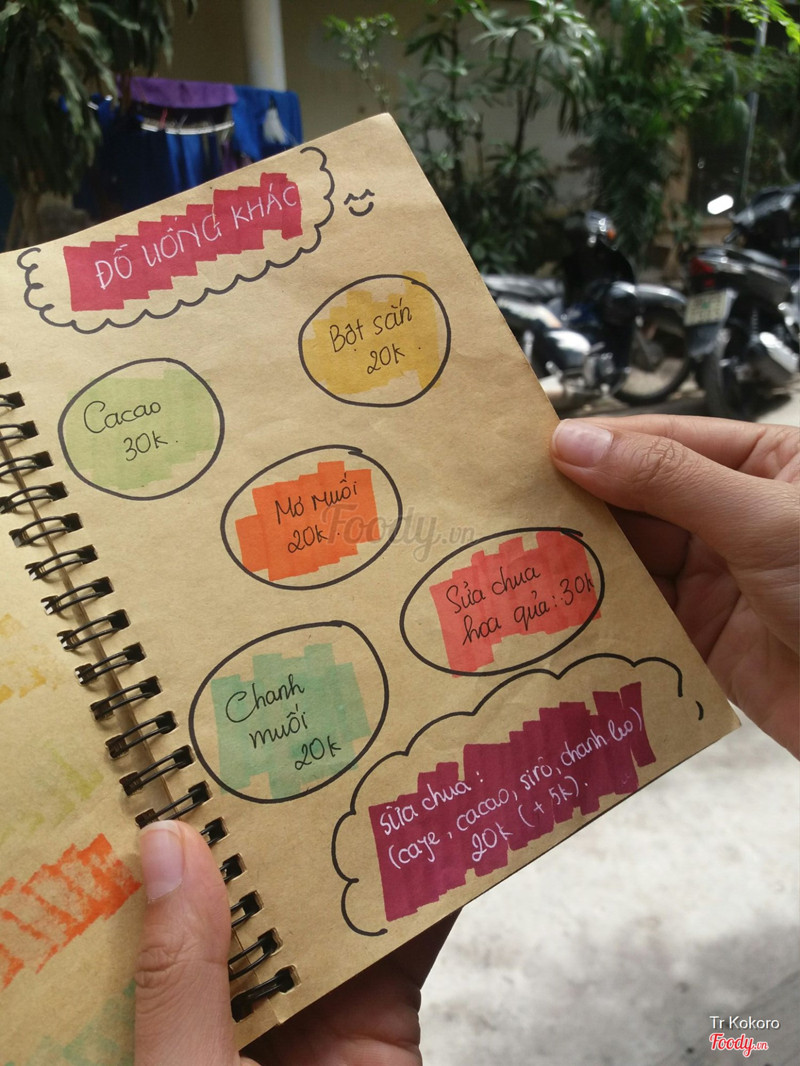 ĐỒ UỐNG KHÁC
Bột sắn
20k.
Cacao
30k.
Mơ muối
20k.
Foody.vn
Sửa chua
hoa quả: 30k
Chanh
muối
20k
sữa chua:
(cafe, cacao, sirô, chanh leo)
20k (+ 5k).
Tr Kokoro
Foody.vn